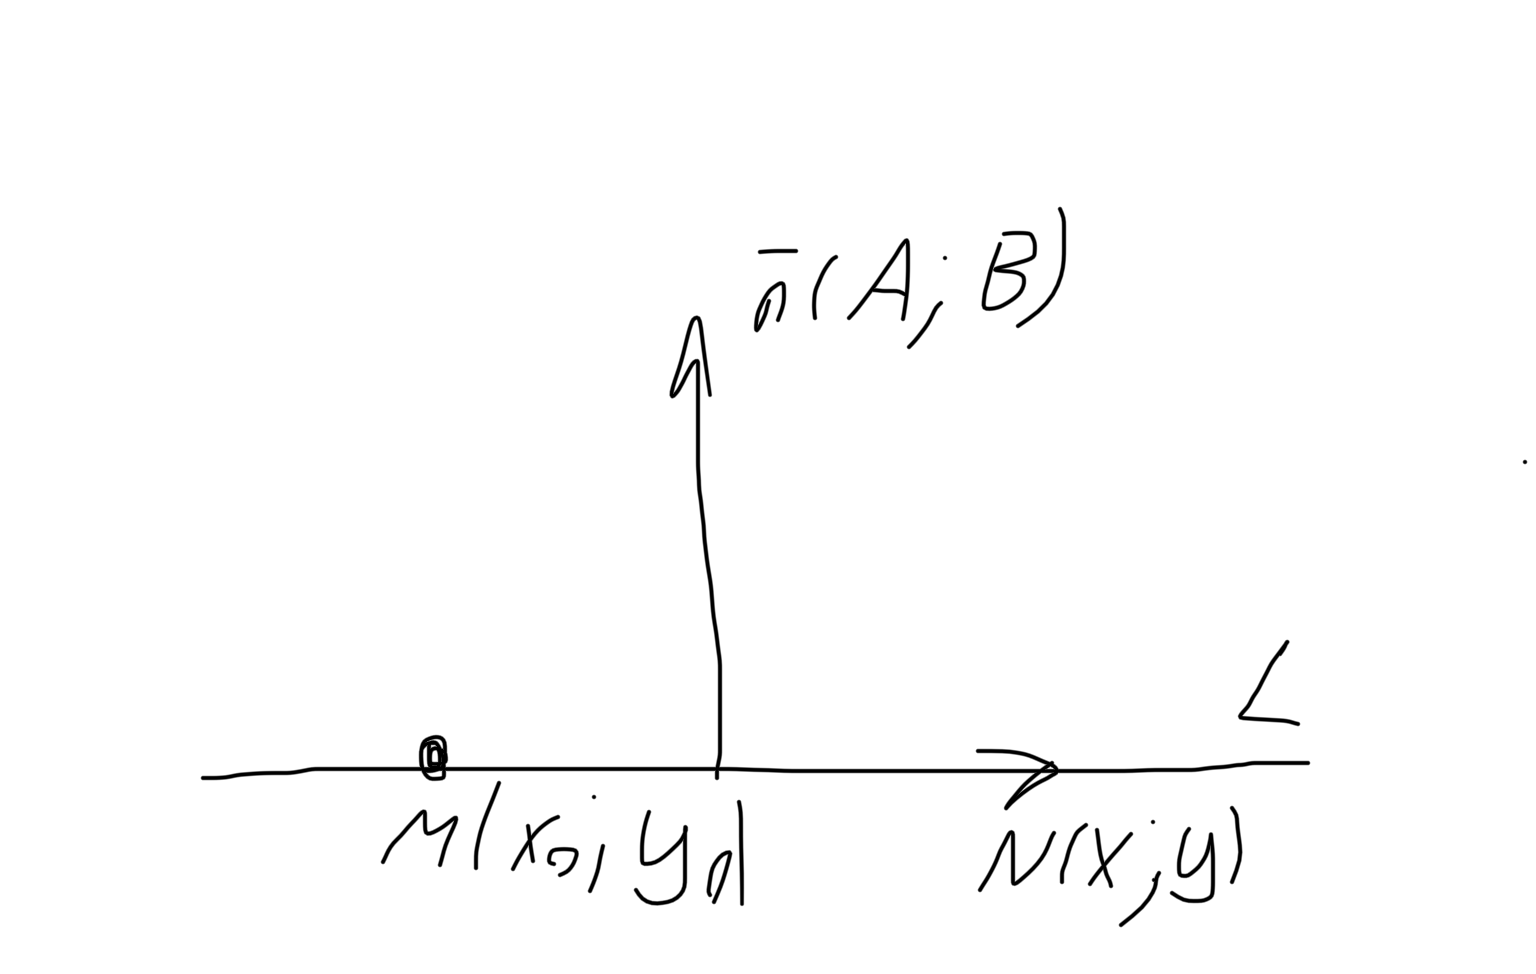 n̅(A; B)
L
M(x₀; y₀)
N(x; y)